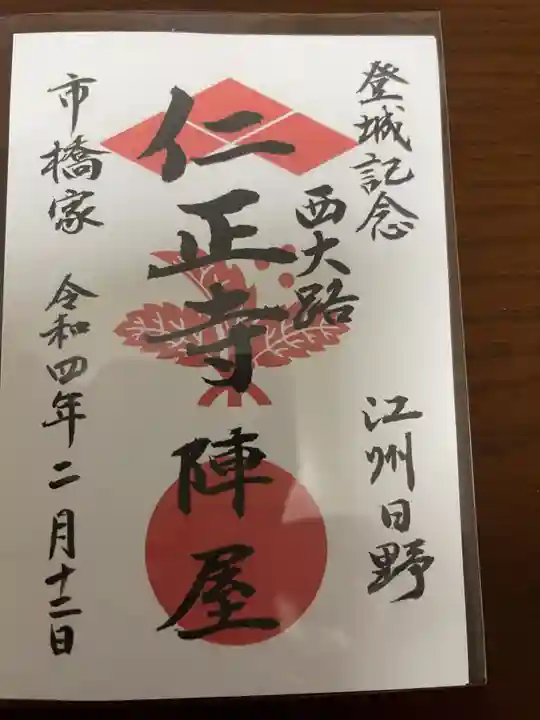 登城記念
江州日野
西大路
仁正寺陣屋
市橋家
令和四年二月十二日